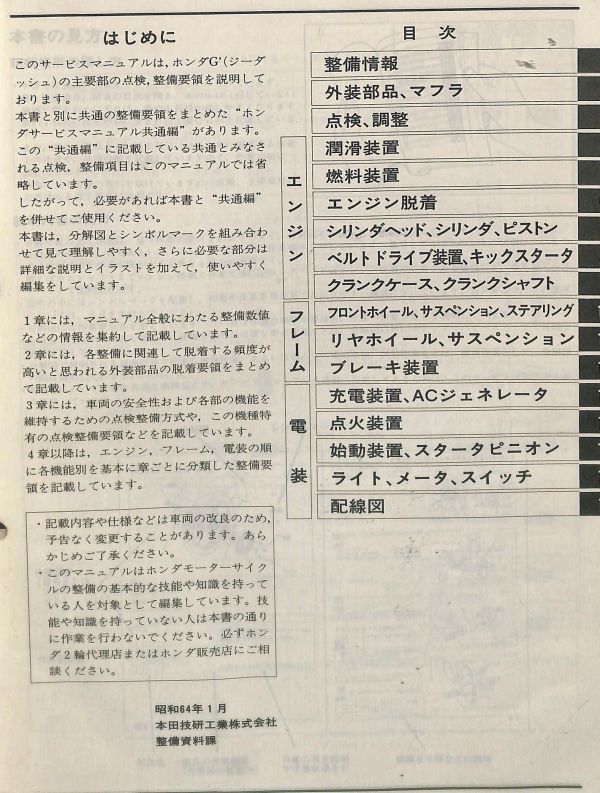 はじめに
このサービスマニュアルは，ホンダG'（ジーダ
ッシュ）の主要部の点検，整備要領を説明して
おります。
本書と別に共通の整備要領をまとめた“ホン
ダサービスマニュアル共通編”があります。
この“共通編”に記載している共通とみなさ
れる点検，整備項目はこのマニュアルでは省
略しています。
したがって，必要があれば本書と“共通編”
を併せてご使用ください。
本書は，分解図とシンボルマークを組み合わ
せて見て理解しやすく，さらに必要な部分は
詳細な説明とイラストを加えて，使いやすく
編集をしています。
1章には，マニュアル全般にわたる整備数値
などの情報を集約して記載しています。
2章には，各整備に関連して脱着する頻度
が高いと思われる外装部品の脱着要領をまとめ
て記載しています。
3章には，車両の安全性および各部の機能を
維持するための点検整備方式や，この機種特
有の点検整備要領などを記載しています。
4章以降は，エンジン，フレーム，電装の順
に各機能別を基本に章ごとに分類した整備要
領を記載しています。
・記載内容や仕様などは車両の改良のため，
予告なく変更することがあります。あら
かじめご了承ください。
・このマニュアルはホンダモーターサイク
ルの整備の基本的な技能や知識を持って
いる人を対象として編集しています。技
能や知識を持っていない人は本書の通り
に作業を行わないでください。必ずホン
ダ2輪代理店またはホンダ販売店にご相
談ください。
昭和64年1月
本田技研工業株式会社
整備資料課
目 次
整備情報
外装部品、マフラ
点検、調整
エンジン
潤滑装置
燃料装置
エンジン脱着
シリンダヘッド、シリンダ、ピストン
ベルトドライブ装置、キックスタータ
クランクケース、クランクシャフト
フレーム
フロントホイール、サスペンション、ステアリング
リヤホイール、サスペンション
ブレーキ装置
電装
充電装置、ACジェネレータ
点火装置
始動装置、スタータピニオン
ライト、メータ、スイッチ
配線図